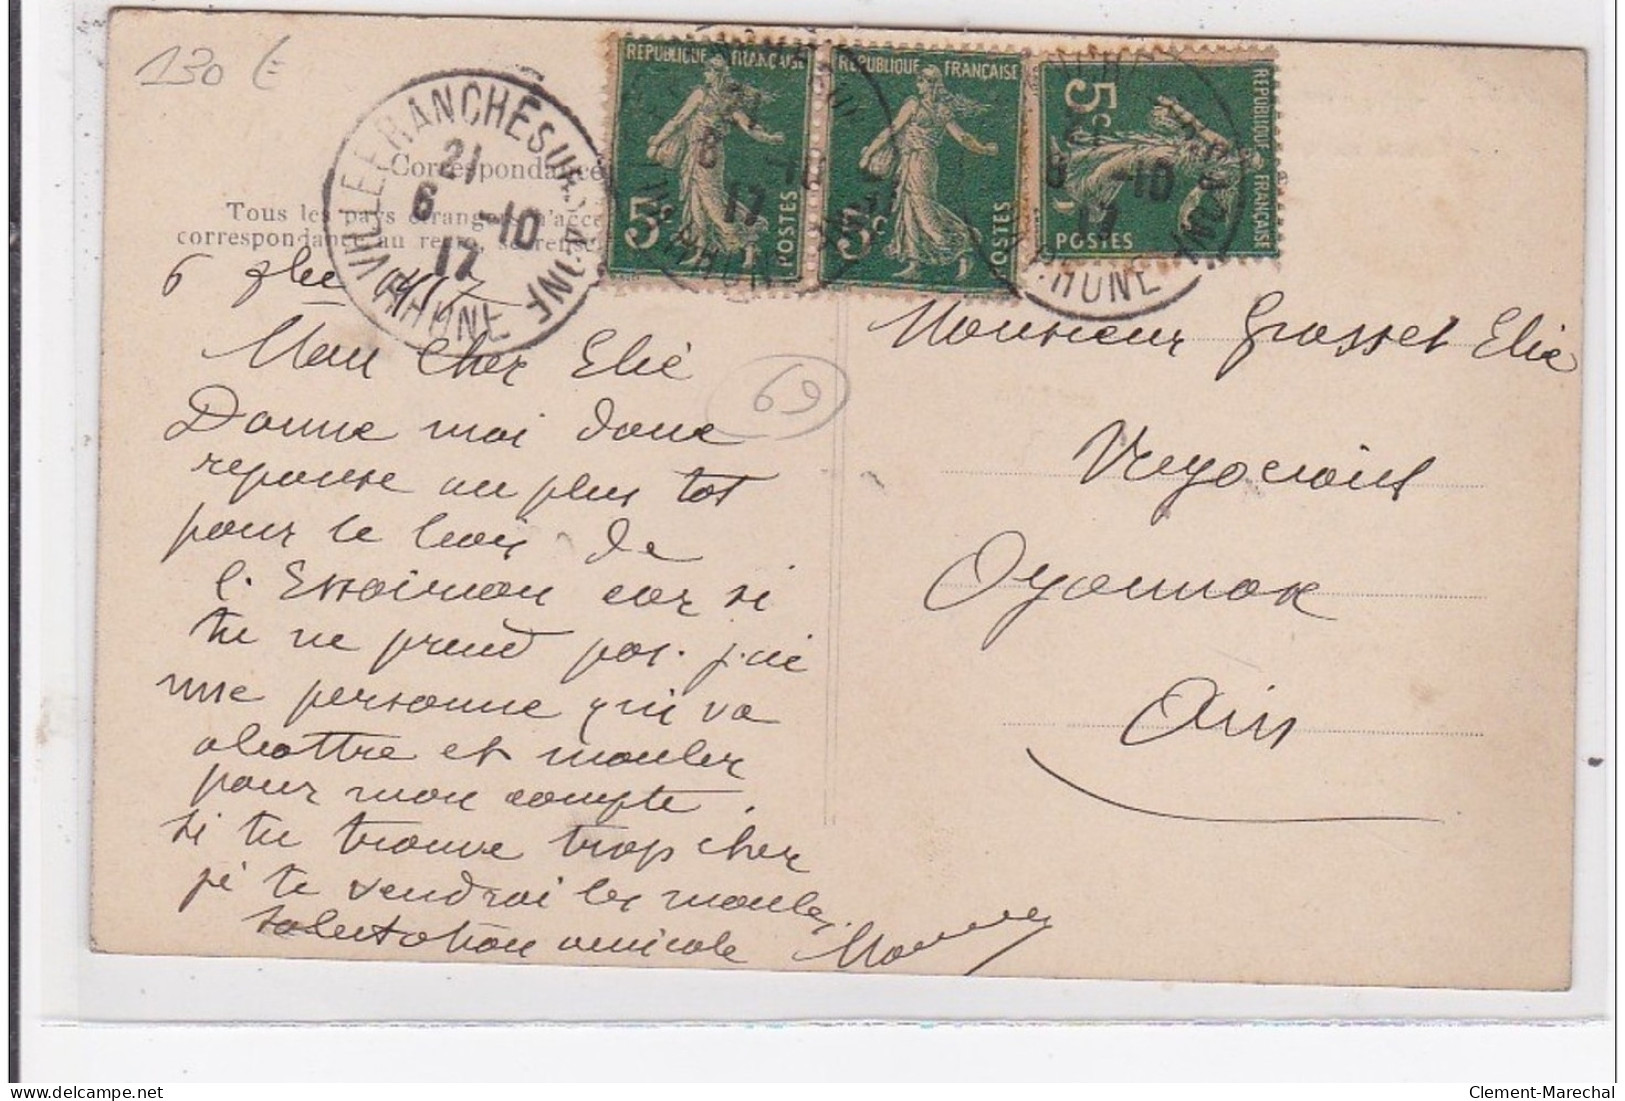 130 €
VILLEFRANCHE SUR SAONE
21
6 -10
17
RHONE
REPUBLIQUE FRANÇAISE
5c
POSTES
REPUBLIQUE FRANÇAISE
5c
POSTES
REPUBLIQUE FRANÇAISE
5c
POSTES
21
8 -10
17
RHONE
Correspondance
Tous les pays étrangers n'acce
correspondance au recto, se rensei
6 8bre 1917
Mon Cher Elie
69
Donne moi donc
reponse au plus tot
pour le bois de
l. Essoirion car si
tu ne prend pas. j.ai
une personne qui va
abattre et mouler
pour mon compte.
si tu trouve trop cher
je te vendrai les moules.
salutation amicale
Monsieur Grosset Elie
Négociant
Oyonnax
Ain
Clement-Marechal